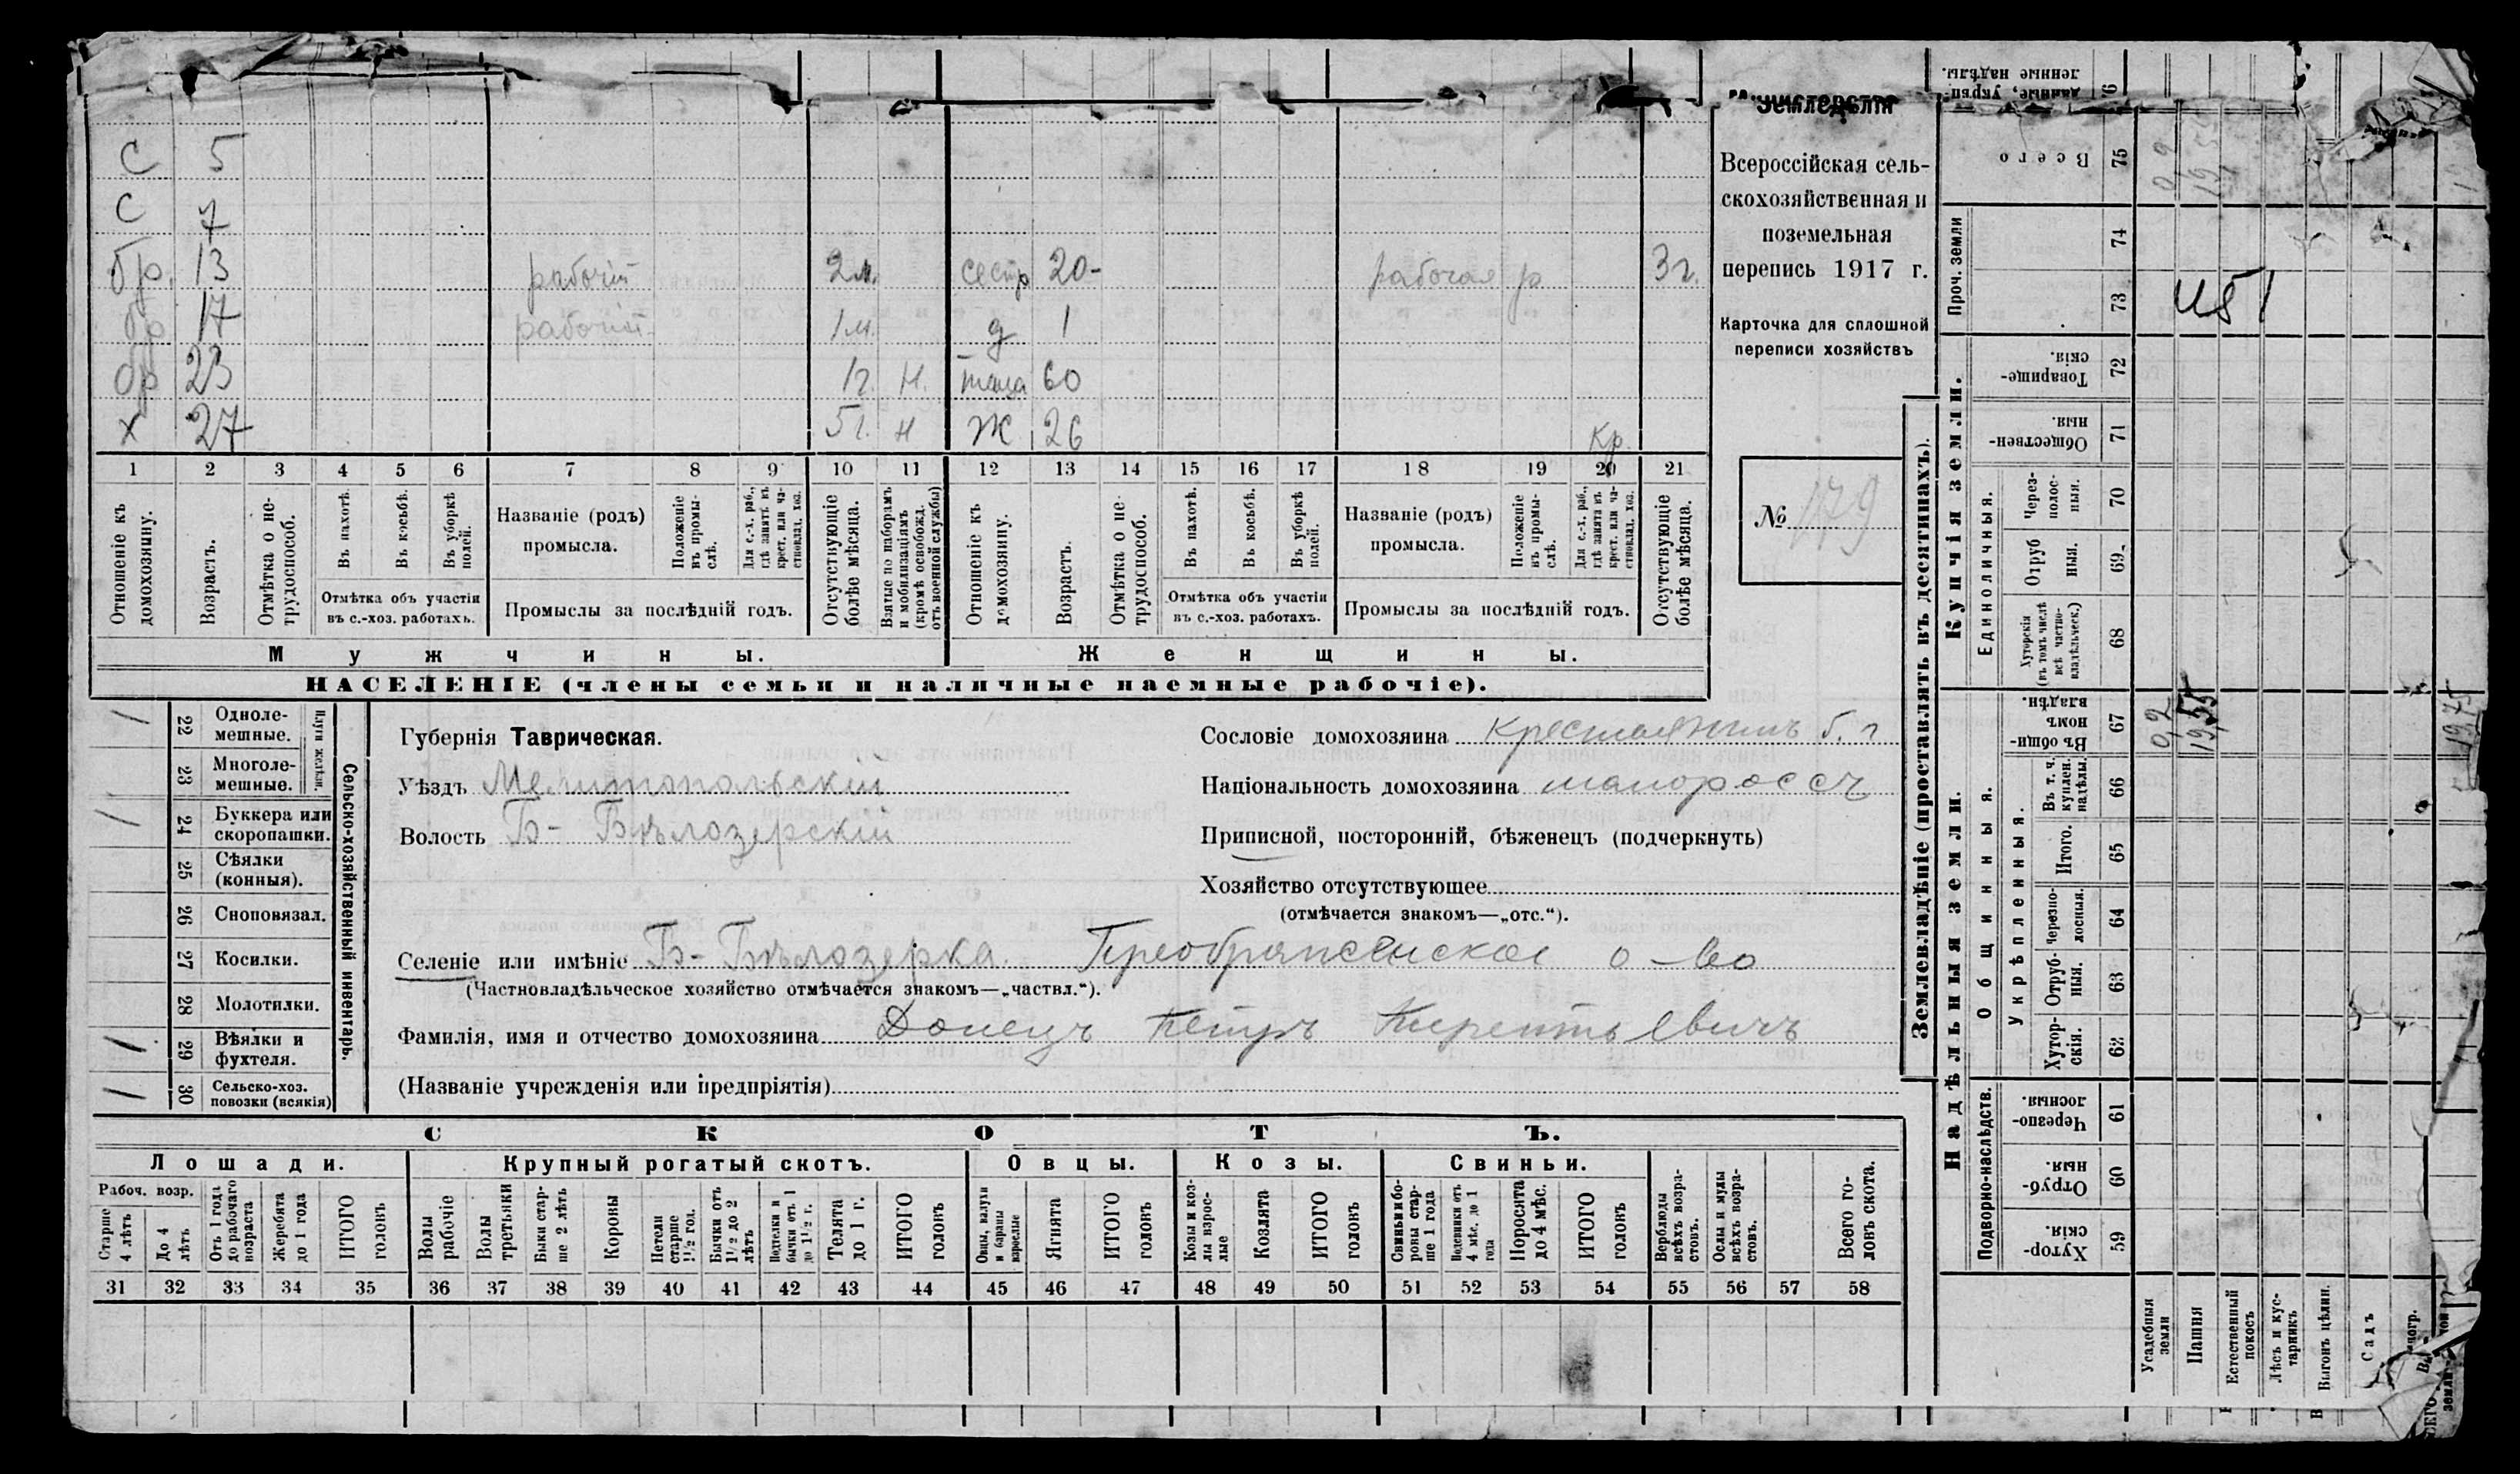 Министерство
Земледѣлія
Всероссійская сель-
скохозяйственная и
поземельная
перепись 1917 г.
Карточка для сплошной
переписи хозяйствъ
№ 179
с 5
с 7
бр. 13 рабочій 2м. сестр 20- рабочая р 3г.
бр 17 рабочій 1м. д 1
бр 23 1г. н. теща 60
х 27 5г. н Ж 26 Кр.
1 2 3 4 5 6 7 8 9 10 11 12 13 14 15 16 17 18 19 20 21
Отношеніе къ домохозяину.
Возрастъ.
Отмѣтка о не-трудоспособ.
Въ пахотѣ.
Въ косьбѣ.
Въ уборкѣ полей.
Отмѣтка объ участіи
въ с.-хоз. работахъ.
Названіе (родъ)
промысла.
Положеніе въ промы-слѣ.
Для с.-х. раб., гдѣ занятъ въ крест. или ча-стновлад. хоз.
Промыслы за послѣдній годъ.
Отсутствующіе болѣе мѣсяца.
Взятые по наборамъ и мобилизаціямъ (кромѣ освобожд. отъ военной службы)
Отношеніе къ домохозяину.
Возрастъ.
Отмѣтка о не-трудоспособ.
Въ пахотѣ.
Въ косьбѣ.
Въ уборкѣ полей.
Отмѣтка объ участіи
въ с.-хоз. работахъ.
Названіе (родъ)
промысла.
Положеніе въ промы-слѣ.
Для с.-х. раб., гдѣ занята въ крест. или ча-стновлад. хоз.
Промыслы за послѣдній годъ.
Отсутствующіе болѣе мѣсяца.
Мужчины. Женщины.
НАСЕЛЕНІЕ (члены семьи и наличные наемные рабочіе).
Сельско-хозяйственный инвентарь.
Плуги желѣзн.
1 22 Одноле-мешные.
23 Многоле-мешные.
1 24 Буккера или скоропашки.
25 Сѣялки (конныя).
26 Сноповязал.
27 Косилки.
28 Молотилки.
1 29 Вѣялки и фухтеля.
1 30 Сельско-хоз. повозки (всякія)
Губернія Таврическая.
Уѣздъ Мелитопольскій
Волость Б- Бѣлозерскій
Сословіе домохозяина крестьянинъ б. г
Національность домохозяина малороссъ
Приписной, посторонній, бѣженецъ (подчеркнуть)
Хозяйство отсутствующее
(отмѣчается знакомъ—„отс.“).
Селеніе или имѣніе Б- Бѣлозерка. Преображенское о-во
(Частновладѣльческое хозяйство отмѣчается знакомъ—„частвл.“).
Фамилія, имя и отчество домохозяина Донецъ Петръ Терентьевичъ
(Названіе учрежденія или предпріятія)
СКОТЪ.
Лошади. Крупный рогатый скотъ. Овцы. Козы. Свиньи.
Рабоч. возр.
Старше 4 лѣтъ
До 4 лѣтъ
Отъ 1 года до рабочаго возраста
Жеребята до 1 года
ИТОГО головъ
Волы рабочіе
Волы третьяки
Быки стар-ше 2 лѣтъ
Коровы
Нетели старше 1½ год.
Бычки отъ 1½ до 2 лѣтъ
Подтелки и бычки отъ 1 до 1½ г.
Телята до 1 г.
ИТОГО головъ
Овцы, валухи и бараны взрослые
Ягнята
ИТОГО головъ
Козы и коз-лы взрос-лые
Козлята
ИТОГО головъ
Свиньи и бо-ровы стар-ше 1 года
Подсвинки отъ 4 мѣс. до 1 года
Поросята до 4 мѣс.
ИТОГО головъ
Верблюды всѣхъ возра-стовъ.
Ослы и мулы всѣхъ возра-стовъ.
Всего го-ловъ скота.
31 32 33 34 35 36 37 38 39 40 41 42 43 44 45 46 47 48 49 50 51 52 53 54 55 56 57 58
Землевладѣніе (проставлять въ десятинахъ).
Надѣльныя земли. Купчія земли.
Проч. земли
Подворно-наслѣдств.
Общинныя.
Укрѣпленныя.
Единоличныя.
Всего 75 0,2 19,55
74
73 1151
Товарище-скія. 72
Обществен-ныя. 71
Через-полос-ныя. 70
Отруб ныя. 69
Хуторскія (въ томъ числѣ всѣ частно-владѣльческ.) 68
Въ общи-номъ владѣн. 67 0,2 19,55 19,75
Въ т. ч. куплен. надѣлы. 66
Итого. 65
Черезпо-лосныя. 64
Отруб-ныя. 63
Хутор-скія. 62
Черезпо-лосныя. 61
Отруб-ныя. 60
Хутор-скія. 59
Усадебныя земли
Пашня
Естественный покосъ
Лѣсъ и кус-тарникъ
Выгонъ цѣлин.
Садъ